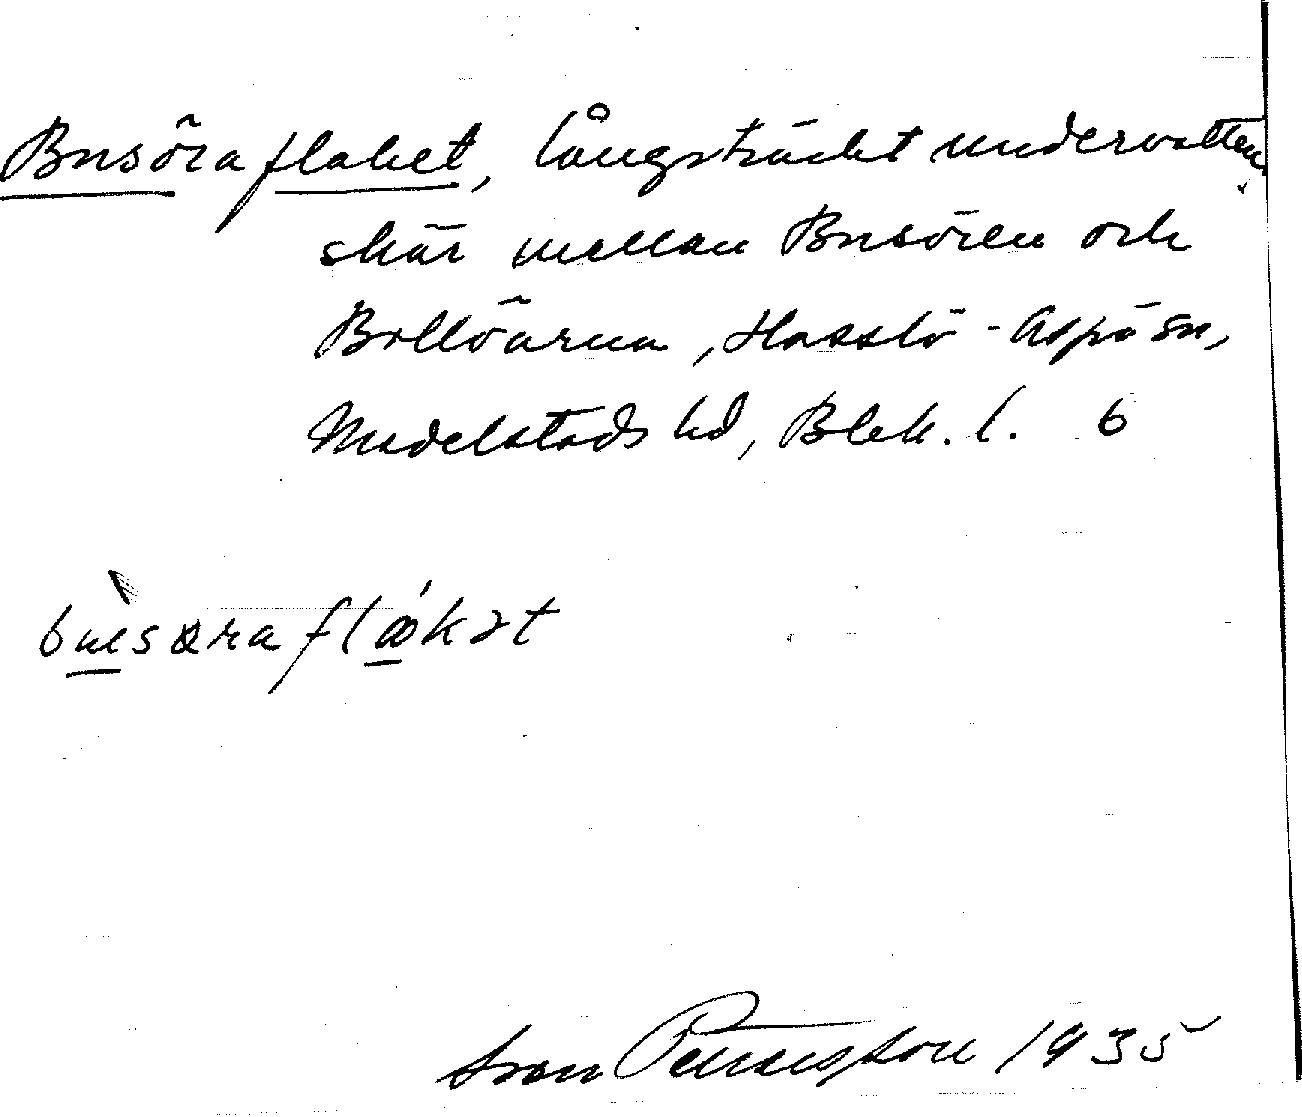 Busöraflaket, långsträckt undervatten
skär mellan Busören och
Bollöarna, Hasslö-Aspö sn,
Medelstads hd, Blek. l. 6
busöraflakət
Sven Pettersson 1935